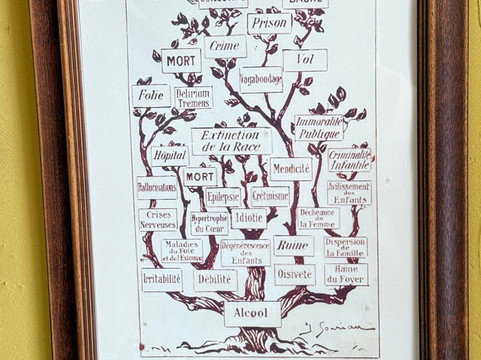 BAGNE
Prison
Crime
MORT
Vol
Vagabondage
Folie
Delirium
Tremens
Immoralité
Publique
Extinction
de la Race
Hôpital
Criminalité
Infantile
MORT
Mendicité
Hallucinations
Epilepsie
Crétinisme
Avilissement
des
Enfants
Crises
Nerveuses
Hypertrophie
du Cœur
Idiotie
Déchéance
de la
Femme
Maladies
du Foie
et de l'Estomac
Dégénérescence
des
Enfants
Ruine
Dispersion
de
la Famille
Irritabilité
Débilité
Oisiveté
Haine
du Foyer
Alcool